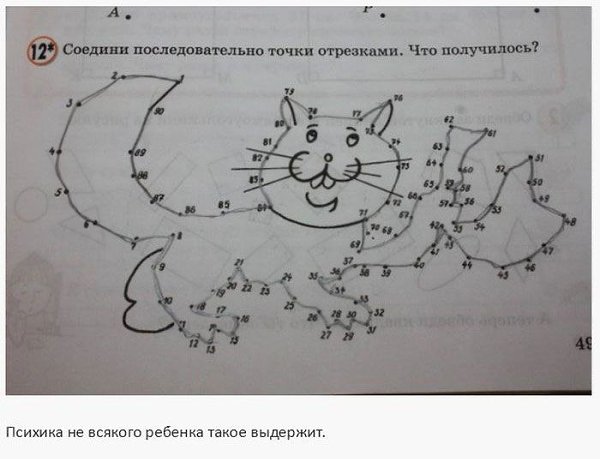 А
Р
12* Соедини последовательно точки отрезками. Что получилось?
79 76
78 77
80 75 74
81
82 73
83
84 72
2 1
3 90
4 89
88
5 87
86 85
6
7 8
9
10
11
12 13 15
17 16
18 19 20 21 22 23 24
25
26
27 28 29 30 31
32
33
34
35 36 37 38 39 40
41
42 43 44 45 46 47
48
49
50
51
52
53
54 55
56
57 58 59
60
61
62
63
64
65
66
67
68
69
70
71
49
Психика не всякого ребенка такое выдержит.